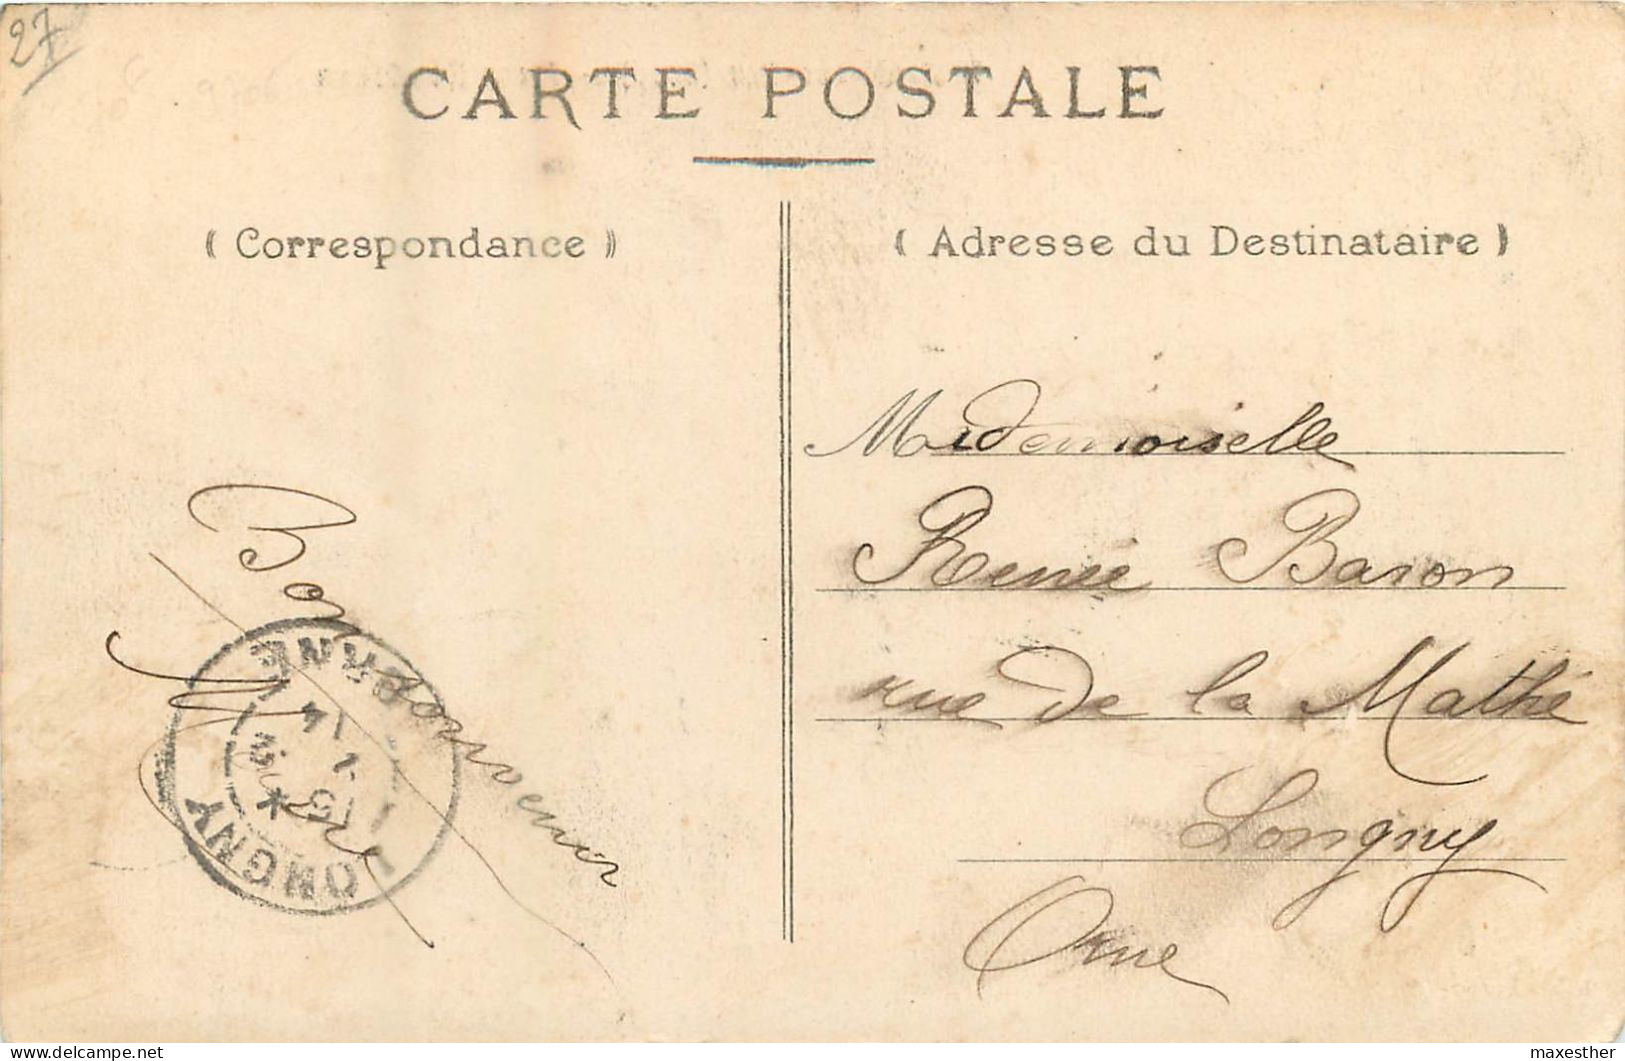 27
CARTE POSTALE
( Correspondance )
( Adresse du Destinataire )
Mademoiselle
Renée Baron
rue de la Mathe
Longny
Orne
Bon souvenir
LONGNY
ORNE
14
delcampe.net
maxesther